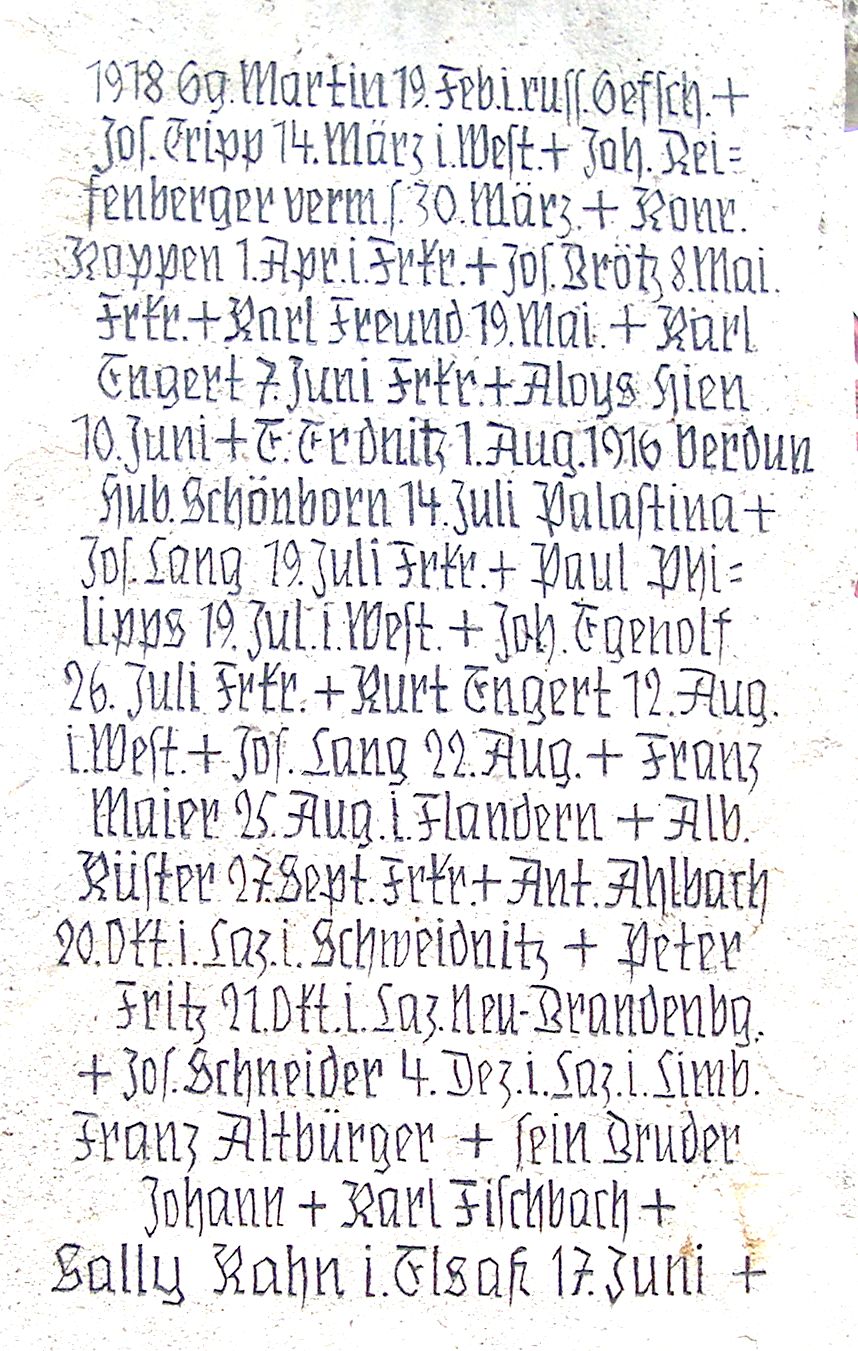 1918 Gg. Martin 19. Feb.i.russ.Gefsch.+
Jos. Tripp 14. März i.West.+ Joh. Rei=
fenberger verm.s. 30. März.+ Konr.
Koppen 1.Apr.i.Frkr.+Jos.Brötz 8.Mai.
Frkr.+Karl Freund 19.Mai.+ Karl
Engert 7.Juni Frkr.+Aloys Hien
10.Juni+E.Erdnitz 1.Aug.1916 Verdun
Hub.Schönborn 14.Juli Palastina+
Jos.Lang 19.Juli Frkr.+ Paul Phi=
lipps 19.Jul.i.West.+Joh.Egenolf
26. Juli Frkr.+Kurt Engert 12.Aug.
i.West.+Jos. Lang 22.Aug.+ Franz
Maier 25.Aug.i.Flandern + Alb.
Küster 27.Sept.Frkr.+Ant.Ahlbach
20.Okt.i.Laz.i.Schweidnitz + Peter
Fritz 21.Okt.i.Laz.Neu-Brandenbg.
+ Jos.Schneider 4. Dez.i.Laz.i.Limb.
Franz Altbürger + sein Bruder
Johann + Karl Fischbach +
Sally Kahn i.Elsaß 17.Juni +